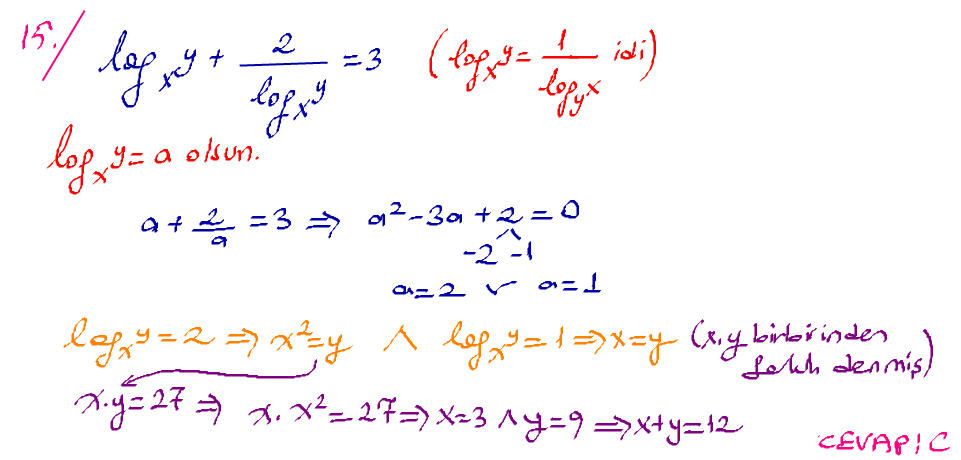 15./ log_x y + 2/(log_x y) = 3 (log_x y = 1/(log_y x) idi)
log_x y = a olsun.
a + 2/a = 3 ⇒ a² - 3a + 2 = 0
-2 -1
a = 2 ∨ a = 1
log_x y = 2 ⇒ x² = y ∧ log_x y = 1 ⇒ x = y (x,y birbirinden farklı denmiş)
x.y = 27 ⇒ x.x² = 27 ⇒ x = 3 ∧ y = 9 ⇒ x + y = 12
CEVAP: C